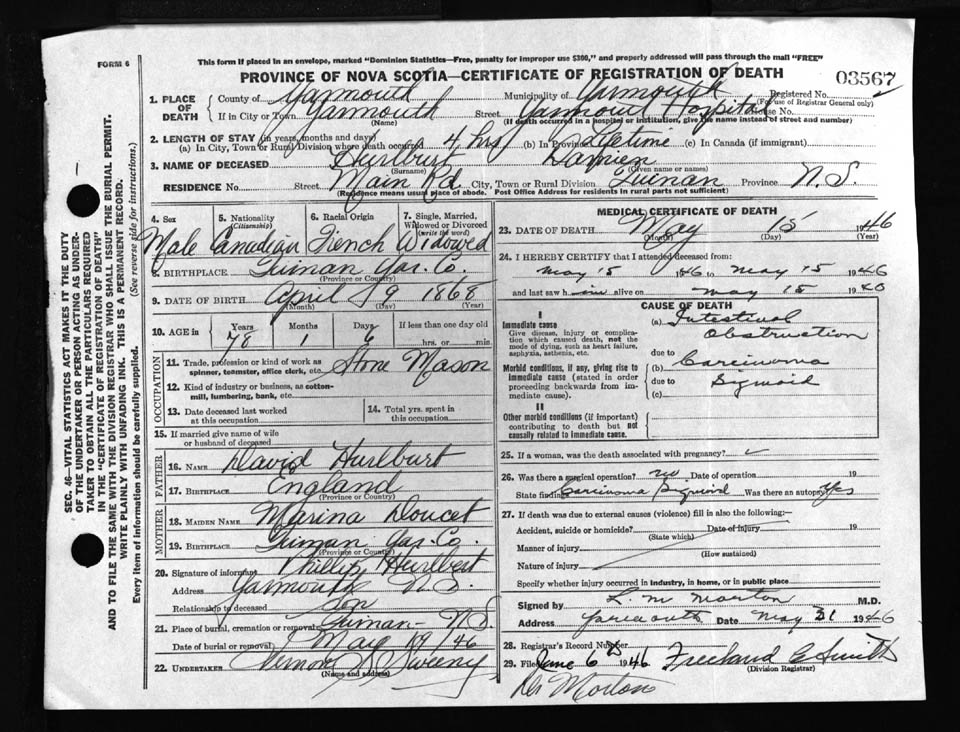 FORM 6
This form if placed in an envelope, marked "Dominion Statistics—Free, penalty for improper use $300," and properly addressed will pass through the mail "FREE"
PROVINCE OF NOVA SCOTIA—CERTIFICATE OF REGISTRATION OF DEATH
03567
1. PLACE OF DEATH
County of Yarmouth Municipality of Yarmouth Registered No.
(For use of Registrar General only)
If in City or Town Yarmouth Street Yarmouth Hospital House No.
(Name) (If death occurred in a hospital or institution, give the name instead of street and number)
2. LENGTH OF STAY (in years, months and days)
(a) In City, Town or Rural Division where death occurred 4 hrs (b) In Province Lifetime (c) In Canada (if immigrant)
3. NAME OF DECEASED Hurlburt Damien
(Surname) (Given name or names)
RESIDENCE No. Street Main Rd. City, Town or Rural Division Quinan Province N.S.
(Residence means usual place of abode. Post Office Address for residents in rural parts not sufficient)
4. Sex 5. Nationality (Citizenship) 6. Racial Origin 7. Single, Married, Widowed or Divorced (write the word)
Male Canadian French Widowed
8. BIRTHPLACE Quinan Yar. Co.
(Province or Country)
9. DATE OF BIRTH April 9 1868
(Month) (Day) (Year)
10. AGE in Years Months Days If less than one day old
78 1 6 hrs. or min.
OCCUPATION
11. Trade, profession or kind of work as spinner, teamster, office clerk, etc. Stone Mason
12. Kind of industry or business, as cotton-mill, lumbering, bank, etc.
13. Date deceased last worked at this occupation
14. Total yrs. spent in this occupation
15. If married give name of wife or husband of deceased
FATHER
16. NAME David Hurlburt
17. BIRTHPLACE England
(Province or Country)
MOTHER
18. MAIDEN NAME Marina Doucet
19. BIRTHPLACE Quinan Yar. Co.
(Province or Country)
20. Signature of informant Phillip Hurlbert
Address Yarmouth N.S.
Relationship to deceased Son
21. Place of burial, cremation or removal Quinan - N.S.
Date of burial or removal May 19/46
22. UNDERTAKER Vernon Sweeny
(Name and address)
MEDICAL CERTIFICATE OF DEATH
23. DATE OF DEATH May 15 1946
(Month) (Day) (Year)
24. I HEREBY CERTIFY that I attended deceased from:
May 15 1946 to May 15 1946
and last saw him alive on May 15 1946
CAUSE OF DEATH
I
Immediate cause
Give disease, injury or complication which caused death, not the mode of dying, such as heart failure, asphyxia, asthenia, etc.
(a) Intestinal Obstruction
due to
Morbid conditions, if any, giving rise to immediate cause (stated in order proceeding backwards from immediate cause).
(b) Carcinoma
due to Sigmoid
(c)
II
Other morbid conditions (if important) contributing to death but not causally related to immediate cause.
25. If a woman, was the death associated with pregnancy?
26. Was there a surgical operation? no Date of operation 19
State findings Carcinoma Sigmoid Was there an autopsy? Yes
27. If death was due to external causes (violence) fill in also the following:—
Accident, suicide or homicide? Date of injury 19
(State which)
Manner of injury
(How sustained)
Nature of injury
Specify whether injury occurred in industry, in home, or in public place
Signed by L. M. Morton M.D.
Address Yarmouth Date May 31 1946
28. Registrar's Record Number
29. Filed June 6 1946 Freeland E Smith
(Division Registrar)
Dr Morton
SEC. 46—VITAL STATISTICS ACT MAKES IT THE DUTY
OF THE UNDERTAKER OR PERSON ACTING AS UNDER-
TAKER TO OBTAIN ALL THE PARTICULARS REQUIRED
IN THE "CERTIFICATE OF REGISTRATION OF DEATH"
AND TO FILE THE SAME WITH THE DIVISION REGISTRAR WHO SHALL ISSUE THE BURIAL PERMIT.
WRITE PLAINLY WITH UNFADING INK. THIS IS A PERMANENT RECORD.
Every item of information should be carefully supplied. (See reverse side for instructions.)